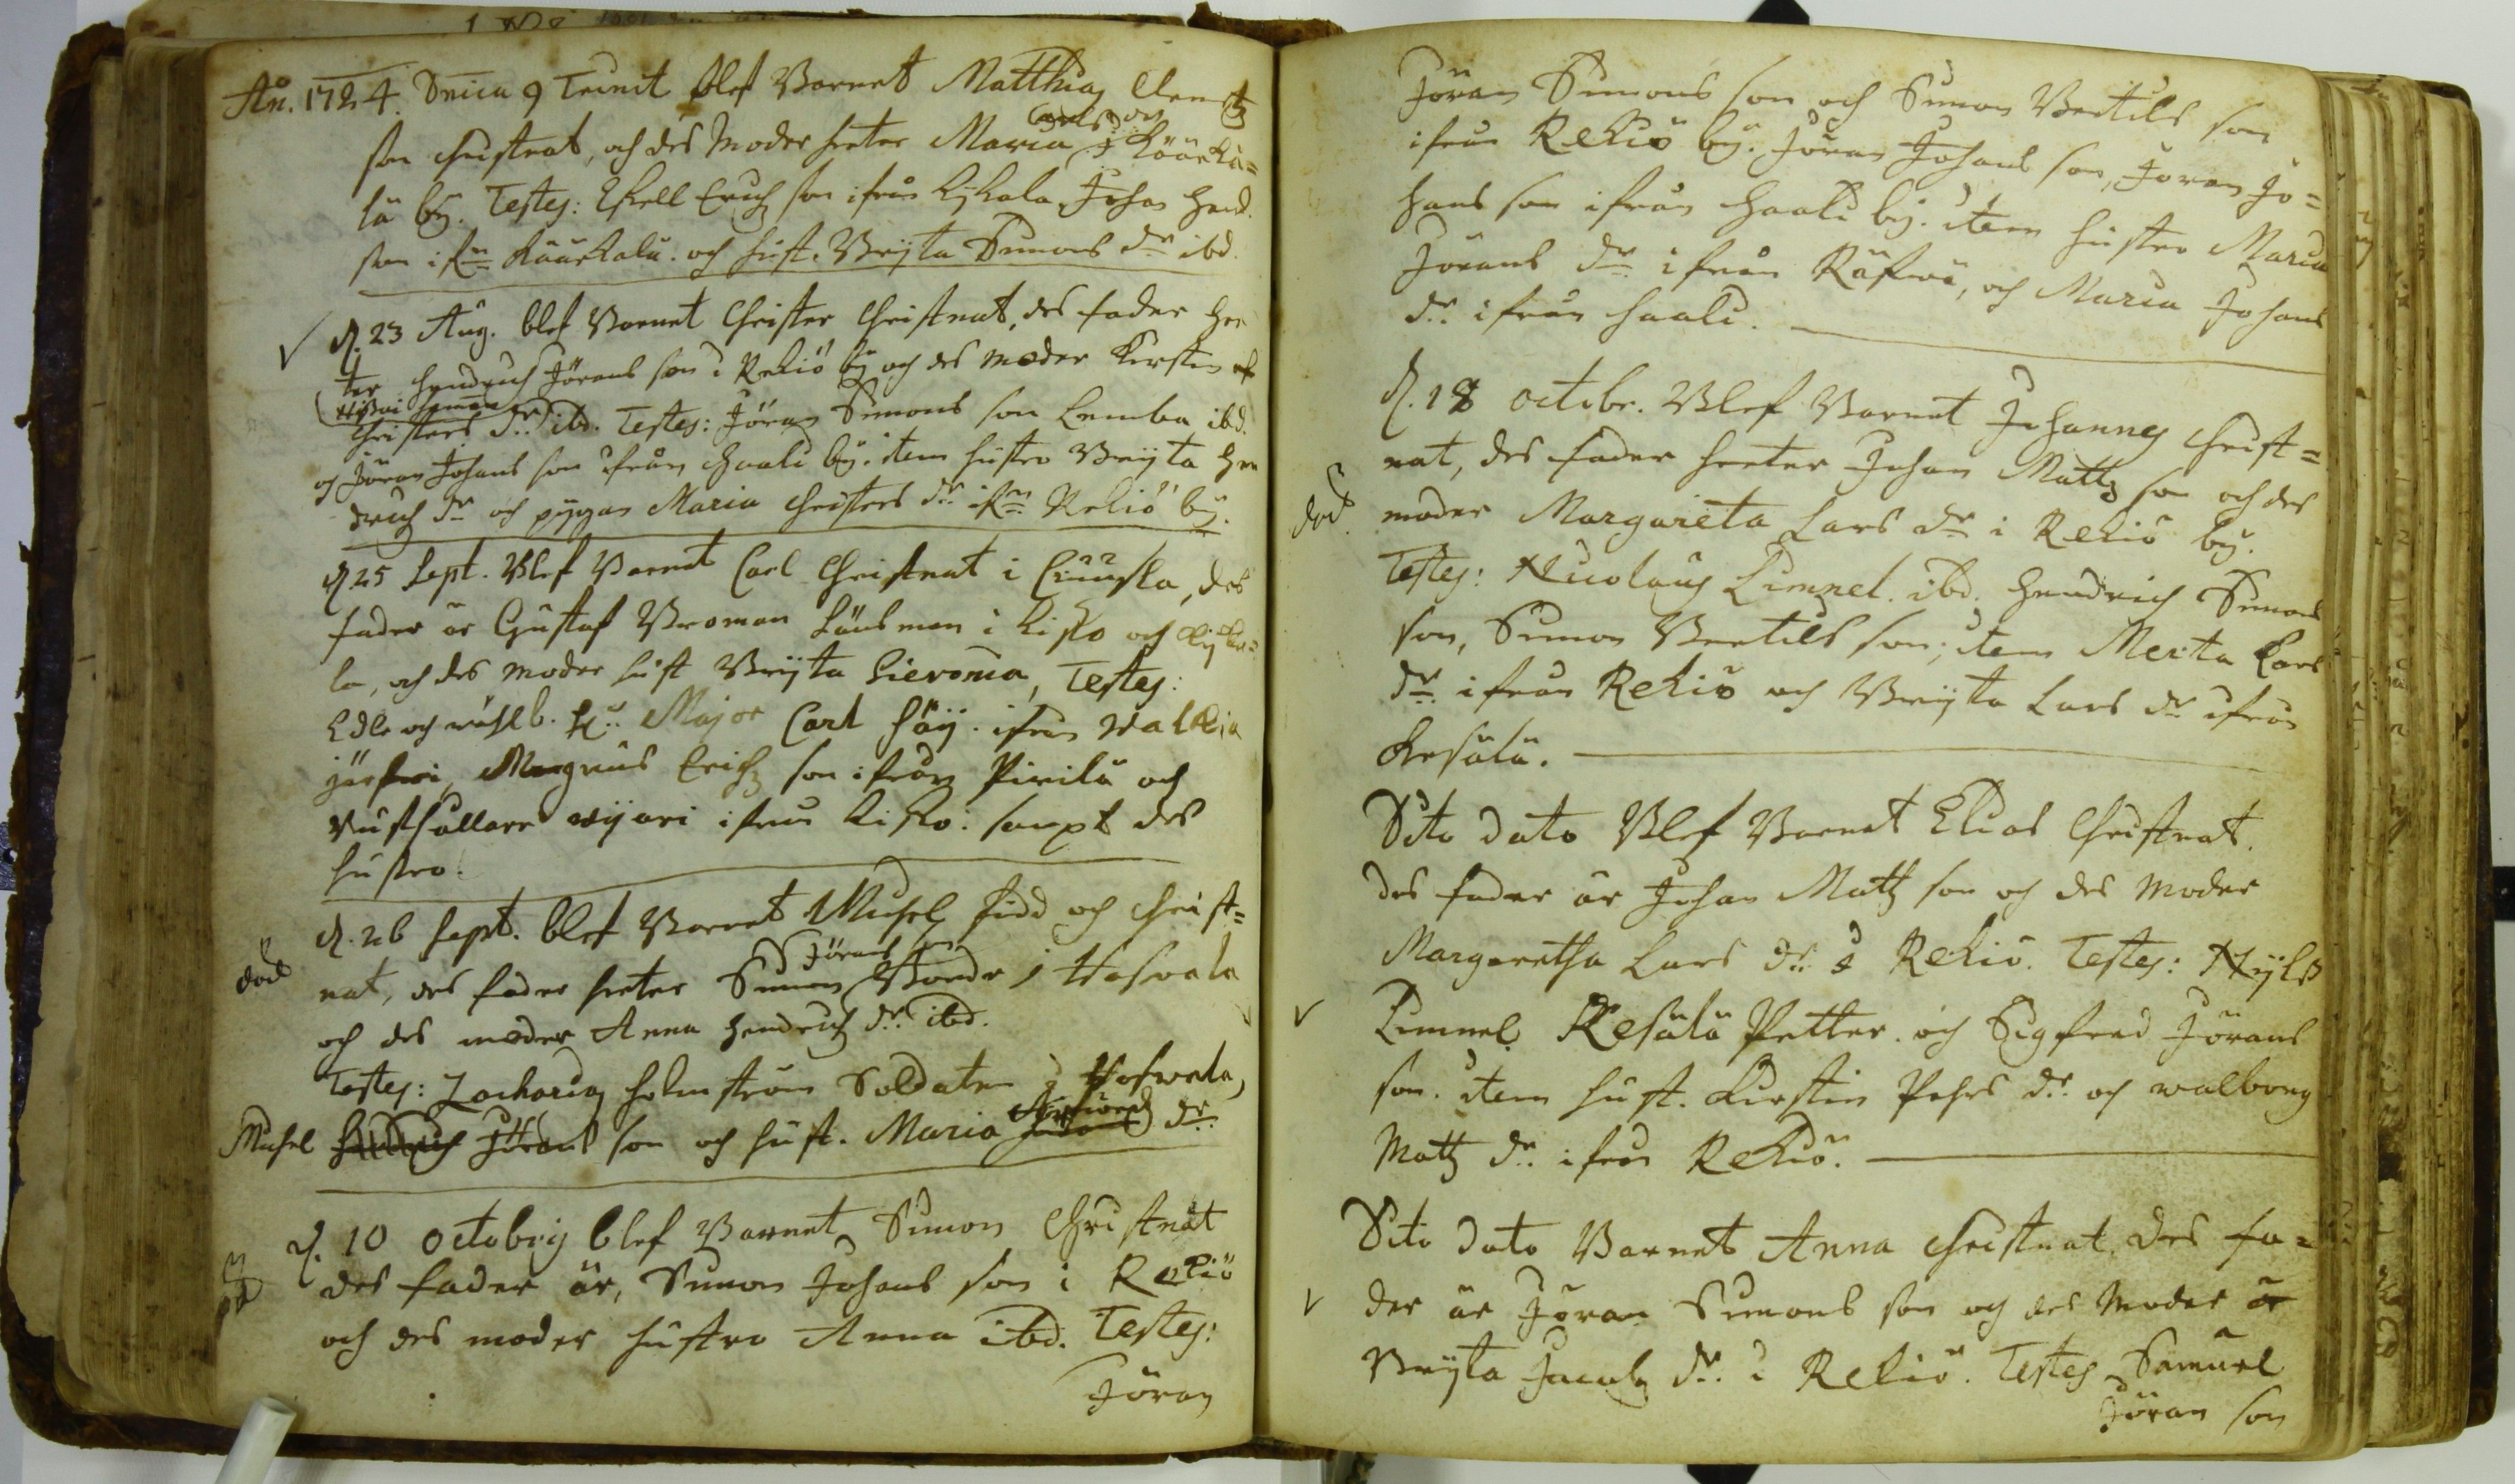 An. 1724. Dnica 9 Trinit blef Barnet Matthias Clemetz
Carlsson
son christnat, och des Moder heeter Maria i Kåurku=
la bÿ. Testes: Eskell Erichs son ifrån Kijkala Johan Hend.
son ifrn Kåurkala. och hust. Brijta Simons dr ibd.
d. 23 Aug. blef Barnet Christer Christnat, des fader hee
ter Hendrich Jörans son i Rekiö bÿ och des moder Kirstin
Christers dr ibd. Testes: Jöran Simons son Lemba ibd.
och Jöran Johans son ifrån Haali bÿ. item hustro Brijta Hen
drichs dr och pijgan Maria Christers dr ifrn Rekiö bÿ.
d. 25 Sept. Blef Barnet Carl Christnat i, des
fader är Gustaf Broman Länsman i Kisko och Kijka=
la, och des moder hust Brijta Sieronia, Testes:
Edle och wälb. Hr Major Carl Höij. ifrån Walkia
järfwi, Magnus Erichs son ifrån Pirilä och
Rusthållare wijari ifrån Kisko. sampt des
hustro.
d. 26 Sept. blef Barnet Michel födt och christ=
död
Jörans
nat, des fader heeter Simon i Hafwala
och des moder Anna Hendrichs dr ibd.
Testes: Zacharias Holmström Soldaten i Hafwala,
Michel Hendrich Jörans son och hust. Maria dr
d. 10 octobris blef Barnet Simon Christnat
des fader är, Simon Johans son i Rekiö
och des moder hustro Anna ibd. Testes:
Jöran
Jöran Simons son och Simon Bertils son
ifrån Rekiö bÿ. Jöran Johans son, Joran Jo=
hans son ifrån Haali bÿ. item hustro Maria
Jörans dr ifrån Räfwä, och Maria Johans
dr ifrån Haali.
d. 18 octobr. Blef Barnet Johannes Christ=
nat, des fader heeter Johan Matts son och des
död
moder Margareta Lars dr i Rekiö bÿ.
Testes: Nicolaus Limnel. ibd. Hendrich Simons
son, Simon Bertils son; item Merta Lars
dr ifrån Rekiö och Brijta Lars dr ifrån
Kesälä.
Dito dato Blef Barnet Elias Christnat.
des fader är Johan Matts son och des Moder
Margaretha Lars dr i Rekiö. Testes: Nÿls
Limnel Kesälä Petter. och Sigfred Jörans
son. item hust. Kirstin Pehrs dr och walborg
Matts dr ifrån Rekiö.
Dito dato Barnet Anna christnat. des fa=
der är Jöran Simons son och des Moder är
Brijta Jacobs dr i Rekiö. Testes Samuel
Jöran son